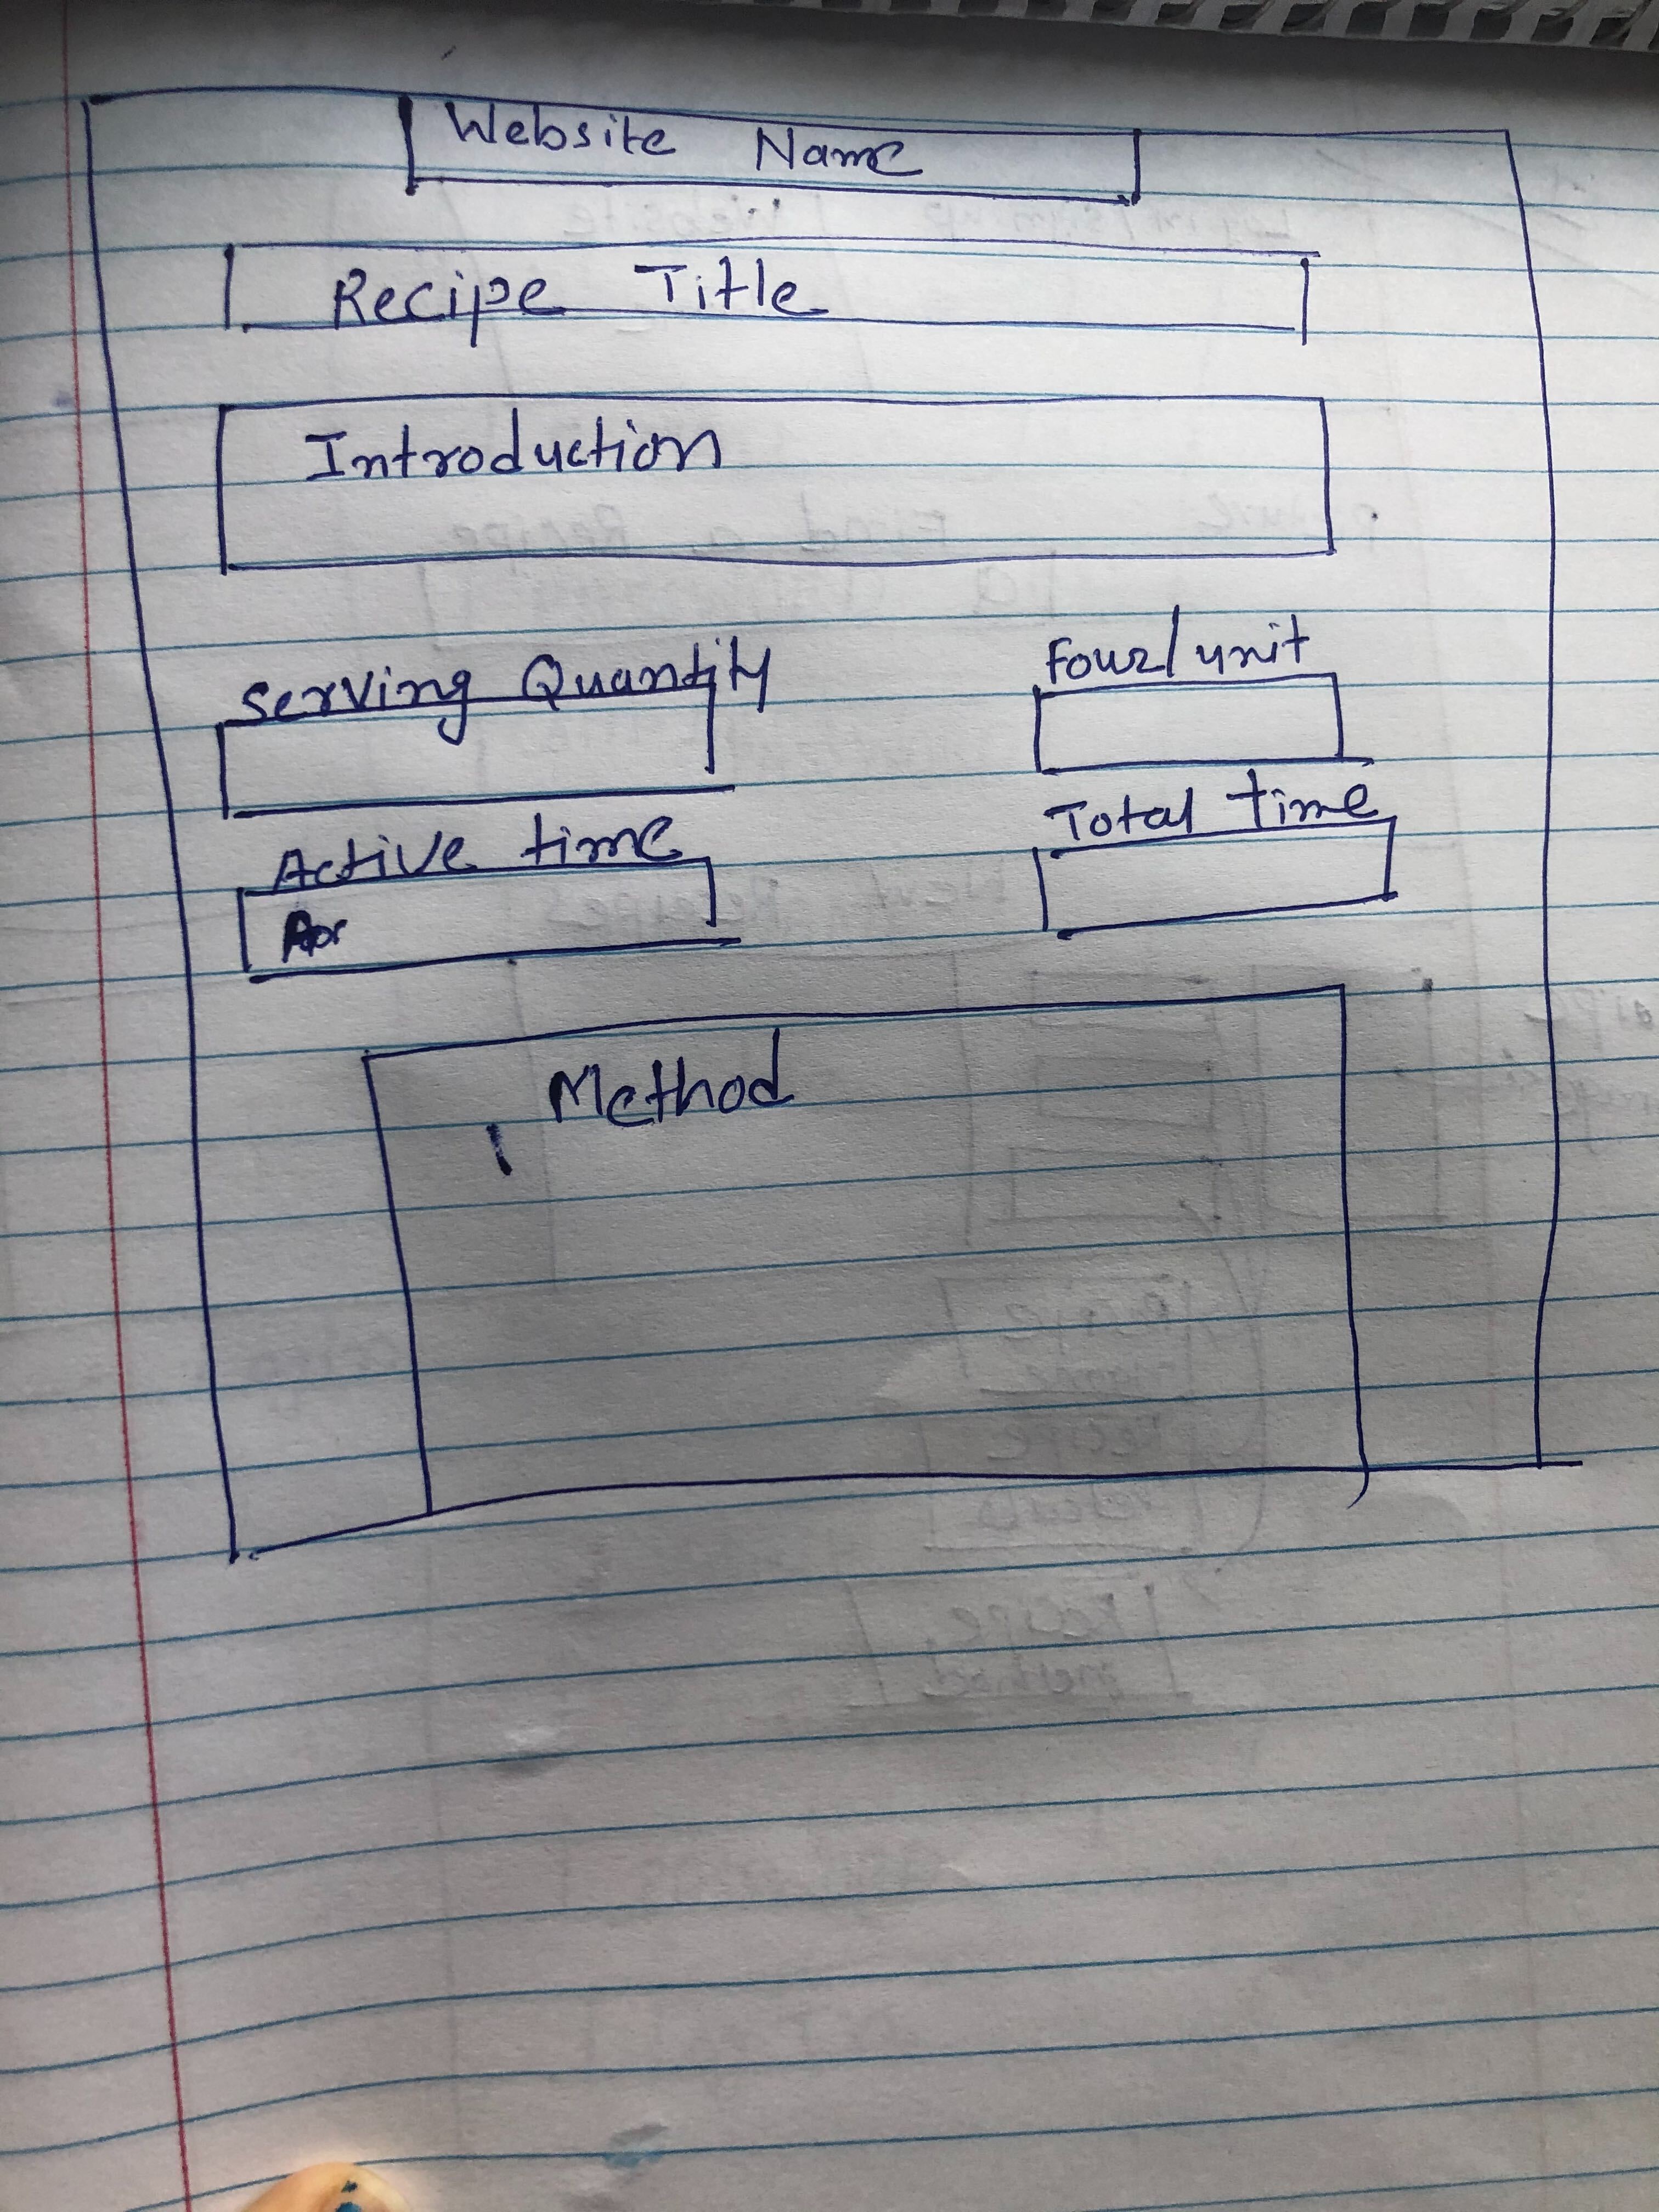 Website Name
Recipe Title
Introduction
Serving Quantity
Four/unit
Active time
Total time
Method